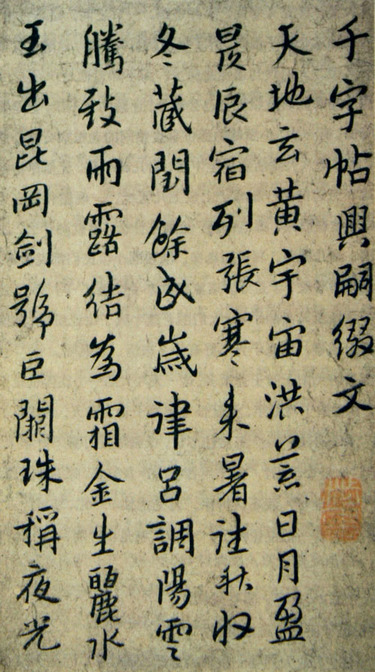 千字帖興嗣綴文
天地玄黄宇宙洪荒日月盈
昃辰宿列張寒来暑往秋收
冬藏閏餘成歲律呂調陽雲
騰致雨露結為霜金生麗水
玉出昆岡劍號巨闕珠稱夜光